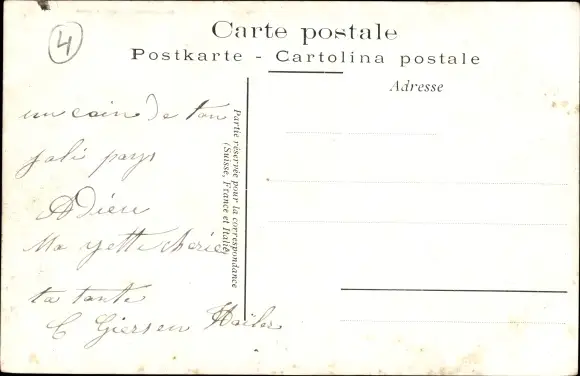 4
Carte postale
Postkarte - Cartolina postale
Adresse
Partie réservée pour la correspondance
(Suisse, France et Italie)
un coin de ton
joli pays
Adieu
Ma yette cherie
ta tante
C Giersen